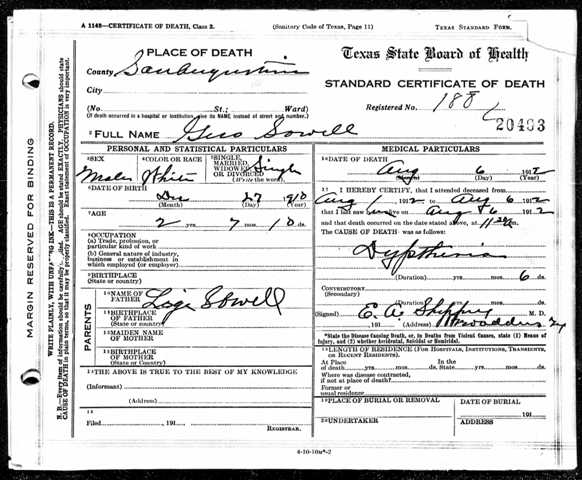 A 1148—CERTIFICATE OF DEATH, Class 2. (Sanitary Code of Texas, Page 11) TEXAS STANDARD FORM.
PLACE OF DEATH
County San Augustine
City
(No. St.; Ward)
(If death occurred in a hospital or institution, give its NAME instead of street and number.)
2 FULL NAME Geo Sowell
Texas State Board of Health
STANDARD CERTIFICATE OF DEATH
Registered No. 188
20493
PERSONAL AND STATISTICAL PARTICULARS
3 SEX Male
4 COLOR OR RACE White
5 SINGLE, MARRIED, WIDOWED OR DIVORCED (Write the word). Single
6 DATE OF BIRTH
Dec 27 1910
(Month) (Day) (Year)
7 AGE
2 yrs. 7 mos. 10 ds.
8 OCCUPATION
(a) Trade, profession, or
particular kind of work
(b) General nature of industry,
business or establishment in
which employed (or employer)
9 BIRTHPLACE
(State or country)
PARENTS
10 NAME OF
FATHER Lige Sowell
11 BIRTHPLACE
OF FATHER
(State or country)
12 MAIDEN NAME
OF MOTHER
13 BIRTHPLACE
OF MOTHER
(State or Country)
14 THE ABOVE IS TRUE TO THE BEST OF MY KNOWLEDGE
(Informant)
(Address)
15
Filed 191
REGISTRAR.
MEDICAL PARTICULARS
16 DATE OF DEATH
Aug 6 1912
(Month) (Day) (Year)
17 I HEREBY CERTIFY, that I attended deceased from
Aug 1, 1912 to Aug 6 1912
that I last saw alive on Aug 6 1912
and that death occurred on the date stated above, at m.
The CAUSE OF DEATH was as follows:
Dyptheria
(Duration) yrs. mos. 6 ds.
CONTRIBUTORY
(Secondary)
(Duration) yrs. mos. ds.
(Signed) E. A. M. D.
191 (Address)
*State the Disease Causing Death, or, in Deaths from Violent Causes, state (1) Means of
Injury, and (2) whether Accidental, Suicidal or Homicidal.
18 LENGTH OF RESIDENCE (FOR HOSPITALS, INSTITUTIONS, TRANSIENTS,
OR RECENT RESIDENTS).
At Place In the
of death yrs. mos. ds. State yrs. mos. ds.
Where was disease contracted,
if not at place of death?
Former or
usual residence
19 PLACE OF BURIAL OR REMOVAL DATE OF BURIAL
191
20 UNDERTAKER ADDRESS
4-10-10m-2
MARGIN RESERVED FOR BINDING
WRITE PLAINLY, WITH UNFADING INK—THIS IS A PERMANENT RECORD.
N. B.—Every item of information should be carefully supplied. AGE should be stated EXACTLY. PHYSICIANS should state
CAUSE OF DEATH in plain terms, so that it may be properly classified. Exact statement of OCCUPATION is very important.